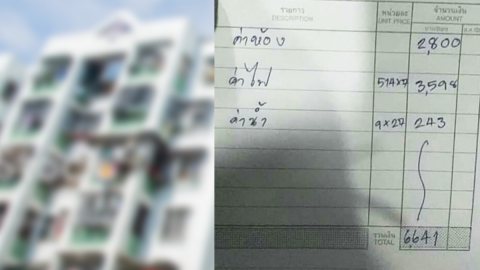 รายการ
DESCRIPTION
หน่วยละ
UNIT PRICE
จำนวนเงิน
AMOUNT
ค่าห้อง 2,800
ค่าไฟ 514x7 3,598
ค่าน้ำ 9x27 243
รวมเงิน
TOTAL 6641